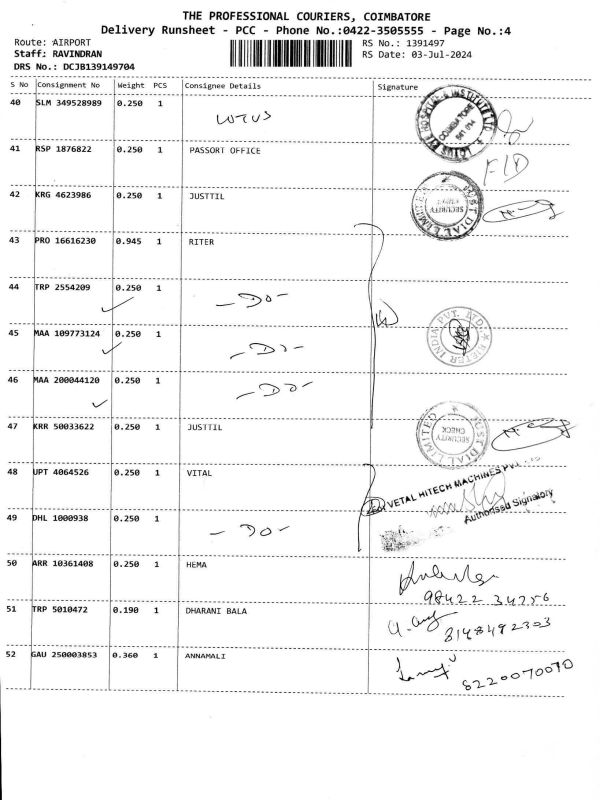 THE PROFESSIONAL COURIERS, COIMBATORE
Delivery Runsheet - PCC - Phone No.:0422-3505555 - Page No.:4
Route: AIRPORT RS No.: 1391497
Staff: RAVINDRAN RS Date: 03-Jul-2024
DRS No.: DCJB139149704
S No Consignment No Weight PCS Consignee Details Signature
40 SLM 349528989 0.250 1 LOTUS
41 RSP 1876822 0.250 1 PASSORT OFFICE
42 KRG 4623986 0.250 1 JUSTTIL
SECURITY
JUST DIAL LIMITED
43 PRO 16616230 0.945 1 RITER
44 TRP 2554209 0.250 1 -DO-
45 MAA 109773124 0.250 1 -DO-
46 MAA 200044120 0.250 1 -DO-
47 KRR 50033622 0.250 1 JUSTTIL
JUST DIAL LIMITED
SECURITY
CHECK
48 UPT 4064526 0.250 1 VITAL
VETAL HITECH MACHINES PVT.
Authorised Signatory
49 DHL 1000938 0.250 1 -DO-
50 ARR 10361408 0.250 1 HEMA
98422 34756
51 TRP 5010472 0.190 1 DHARANI BALA
8148492303
52 GAU 250003853 0.360 1 ANNAMALI
8220070070